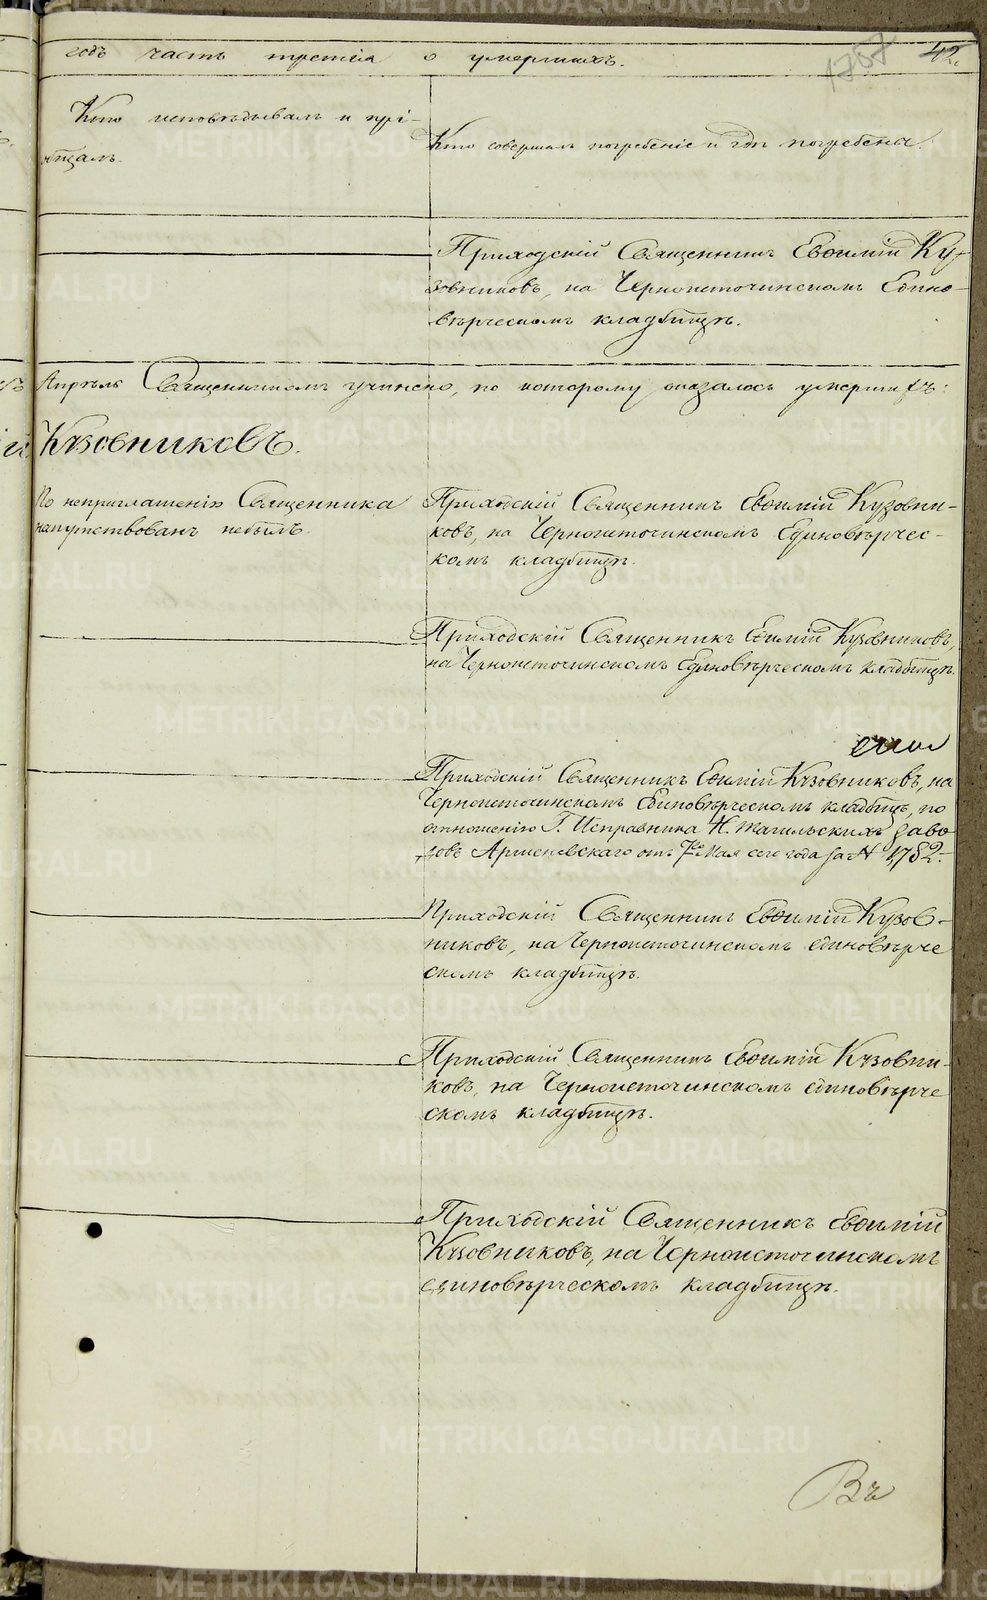 годъ часть третія о умершихъ.
1787 42.
Кто исповѣдывалъ и прі-
общалъ.
Кто совершалъ погребеніе и гдѣ погребены.
Приходскій Священникъ Евѳимій Ку-
зовниковъ, на Черноисточинскомъ Едино-
вѣрческомъ кладбищѣ.
Апрѣль Священникомъ учинено, по которому оказалось умершихъ:
Кузовниковъ.
По неприглашенію Священника
напутствованъ небылъ.
Приходскій Священникъ Евѳимій Кузовни-
ковъ, на Черноисточинскомъ Единовѣрчес-
комъ кладбищѣ.
Приходскій Священникъ Еѳимій Кузовниковъ,
на Черноисточинскомъ Единовѣрческомъ кладбищѣ.
Приходскій Священникъ Еѳимій Кузовниковъ, на
Черноисточинскомъ Единовѣрческомъ кладбищѣ, по
отношенію Г. Исправника Н. Тагильскихъ заво-
довъ отъ 7го Мая сего года за № 1,782.
Приходскій Священникъ Евѳимій Кузов-
никовъ, на Черноисточинскомъ единовѣрче
скомъ кладбищѣ.
Приходскій Священникъ Евѳимій Кузовни-
ковъ, на Черноисточинскомъ единовѣрче
скомъ кладбищѣ.
Приходскій Священникъ Евѳимій
Кузовниковъ, на Черноисточинскомъ
единовѣрческомъ кладбищѣ.
Въ
METRIKI.GASO-URAL.RU